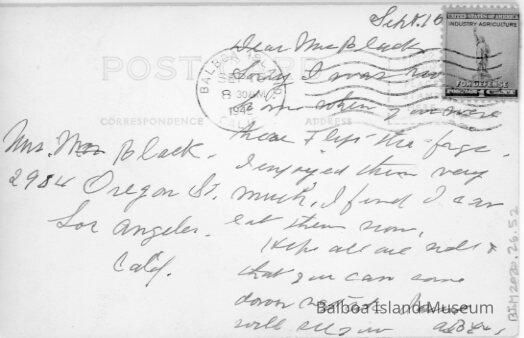 Sept. 16
UNITED STATES OF AMERICA
INDUSTRY AGRICULTURE
FOR DEFENSE
POSTAGE 1 CENT
POST CARD
BALBOA ISLAND
SEP
8 30 AM
1942
CALIF.
CORRESPONDENCE
ADDRESS
Mrs. Black.
2984 Oregon St.
Los Angeles.
Calif.
Dear Mrs Black
Sorry I was
home when you were
here & left the figs.
I enjoyed them very
much, I find I can
eat them now.
Hope all are well &
that you can come
down
will
BIM2020.26.52
Balboa Island Museum